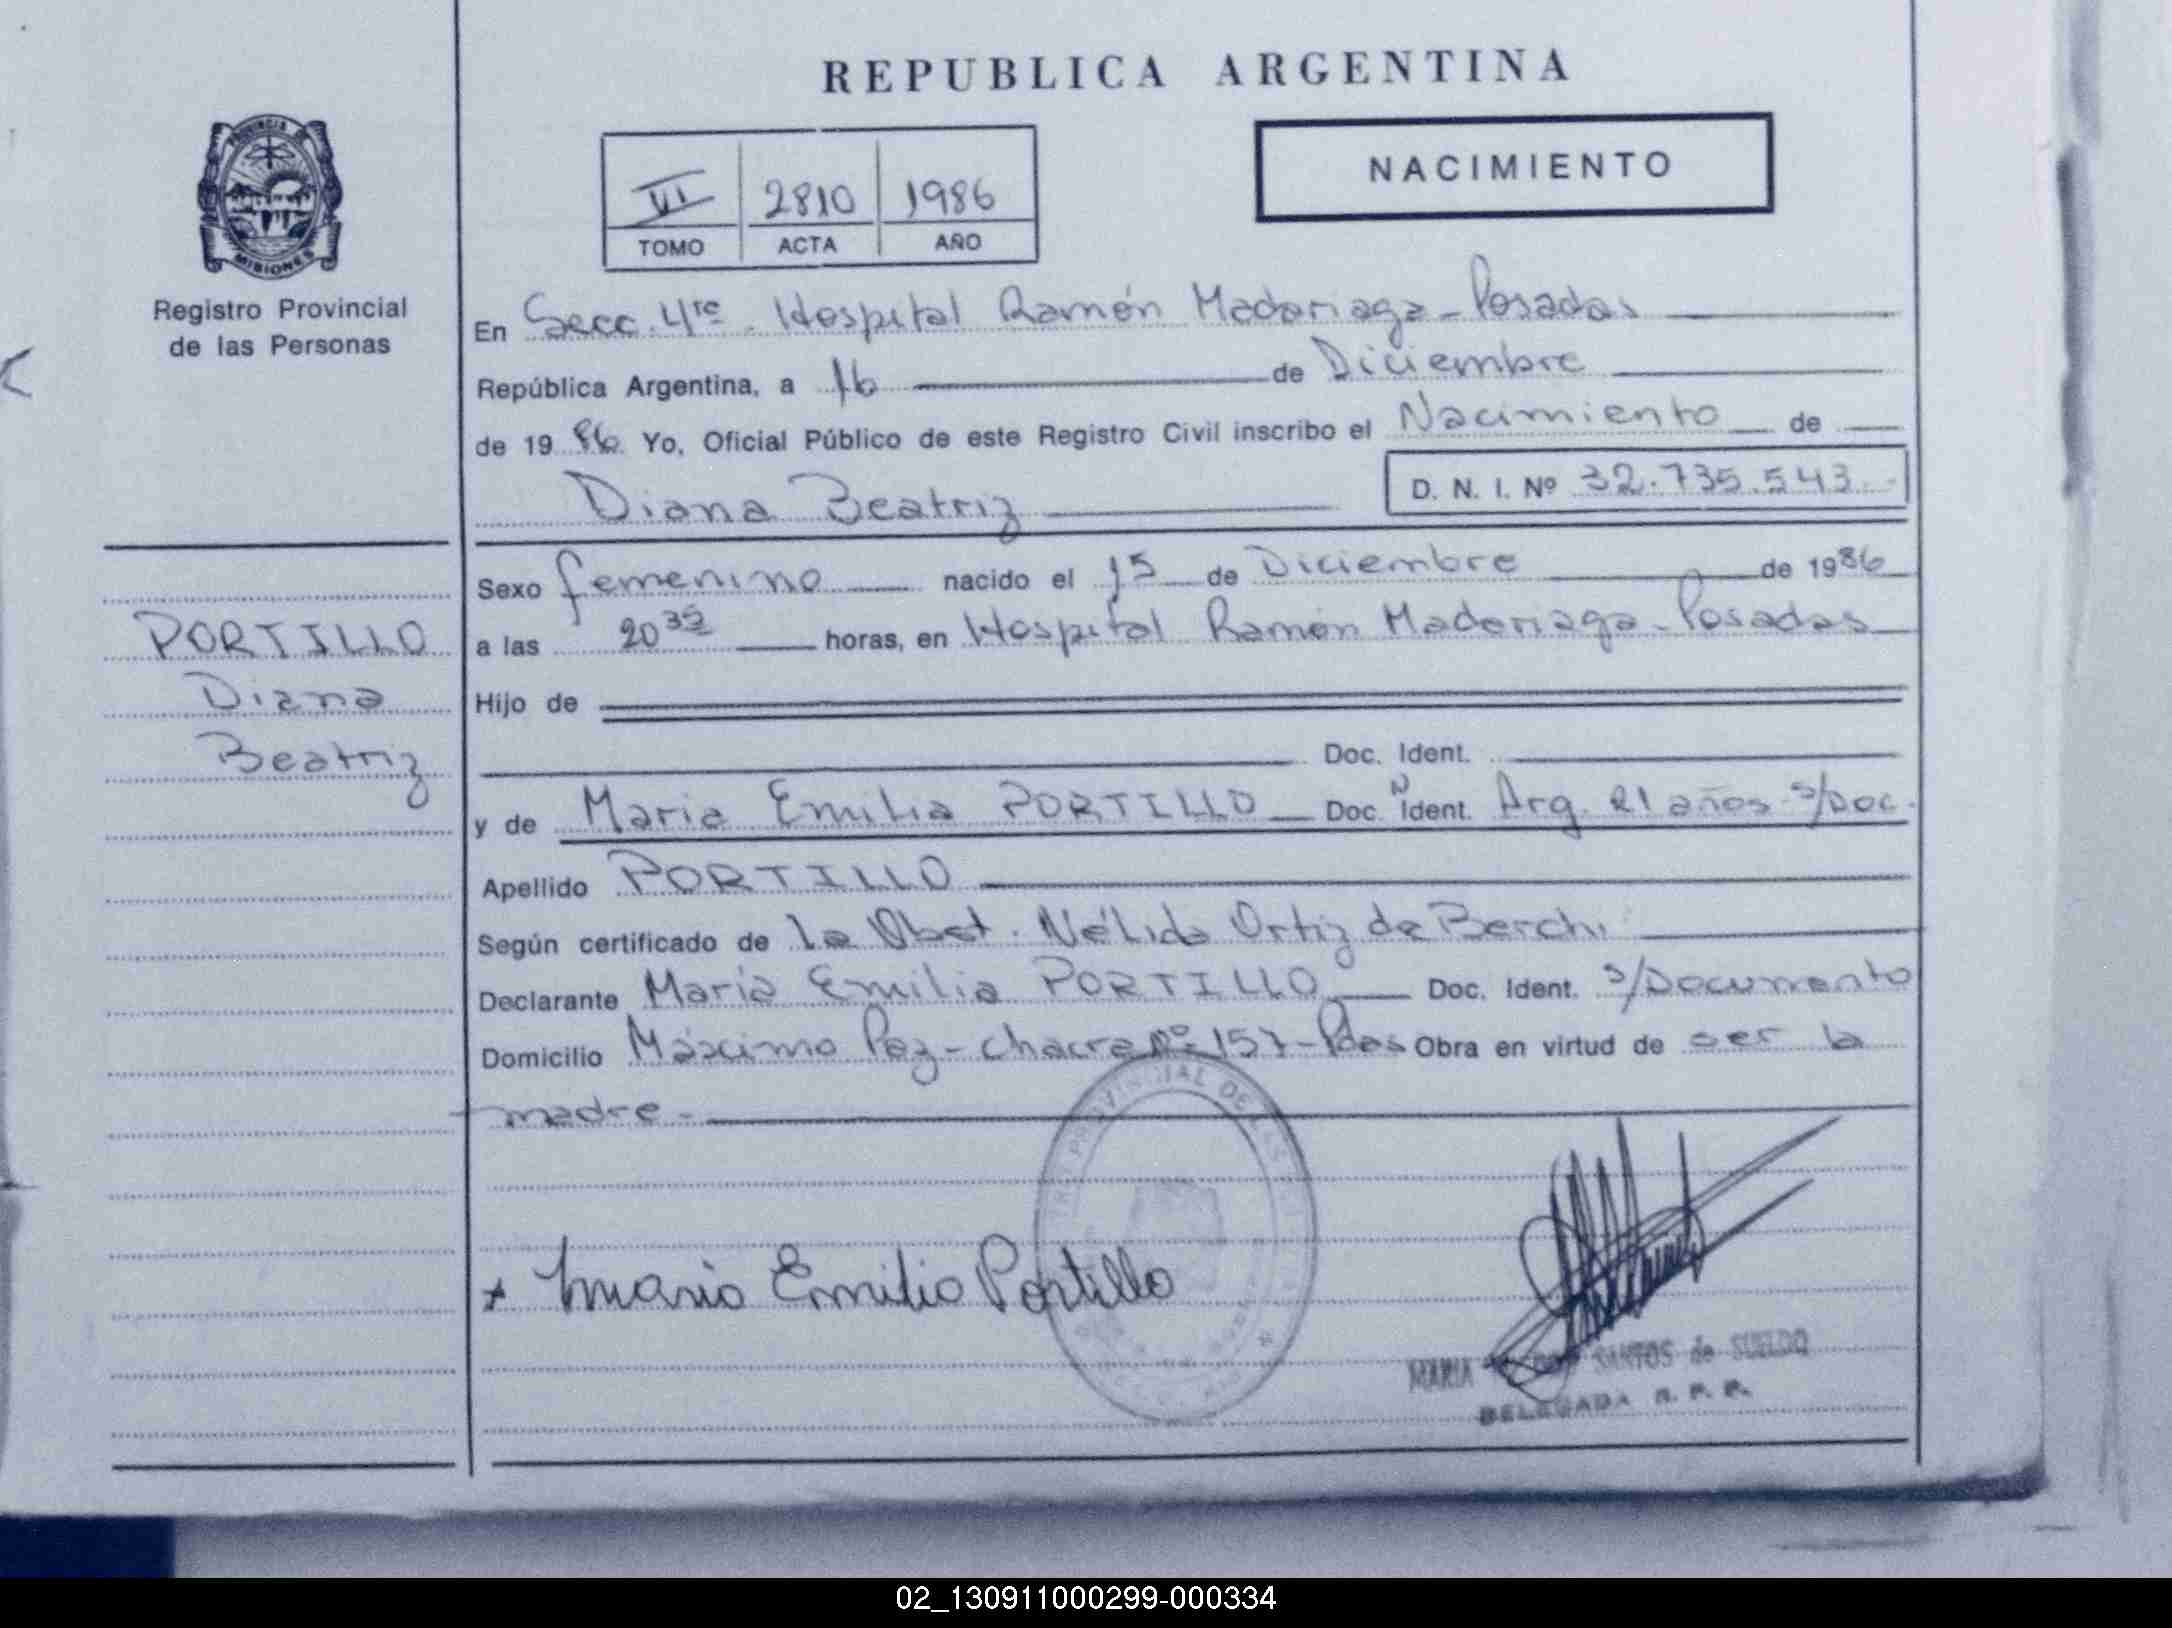 REPUBLICA ARGENTINA
PROVINCIA DE
MISIONES
Registro Provincial
de las Personas
VI 2810 1986
TOMO ACTA AÑO
NACIMIENTO
En Secc. 4ta. Hospital Ramón Madariaga - Posadas
República Argentina, a 16 de Diciembre
de 19 86 Yo, Oficial Público de este Registro Civil inscribo el Nacimiento de
Diana Beatriz
D. N. I. Nº 32.735.543.-
PORTILLO
Diana
Beatriz
Sexo femenino nacido el 15 de Diciembre de 1986
a las 20 35 horas, en Hospital Ramón Madariaga - Posadas
Hijo de
Doc. Ident.
y de Maria Emilia PORTILLO Doc. Ident. N Arg. 21 años - s/Doc.
Apellido PORTILLO
Según certificado de la Obst. Nélida Ortiz de Berchi
Declarante María Emilia PORTILLO Doc. Ident. s/Documento
Domicilio Máximo Paz - chacra Nº 157 - Pdas Obra en virtud de ser la
madre.-
PROVINCIAL DE LAS
Maria Emilia Portillo
MARIA SANTOS de SUELDO
DELEGADA R. P. P.
02_130911000299-000334